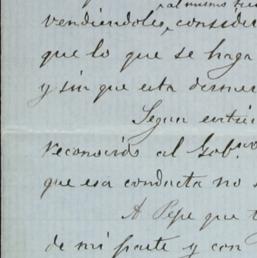 al mismo
vendiendoles, consider
que lo que se haga
y sin que esta
Segun
reconocido al Gob.no
que esa conducta no s
A Pepe que t
de mi parte y con